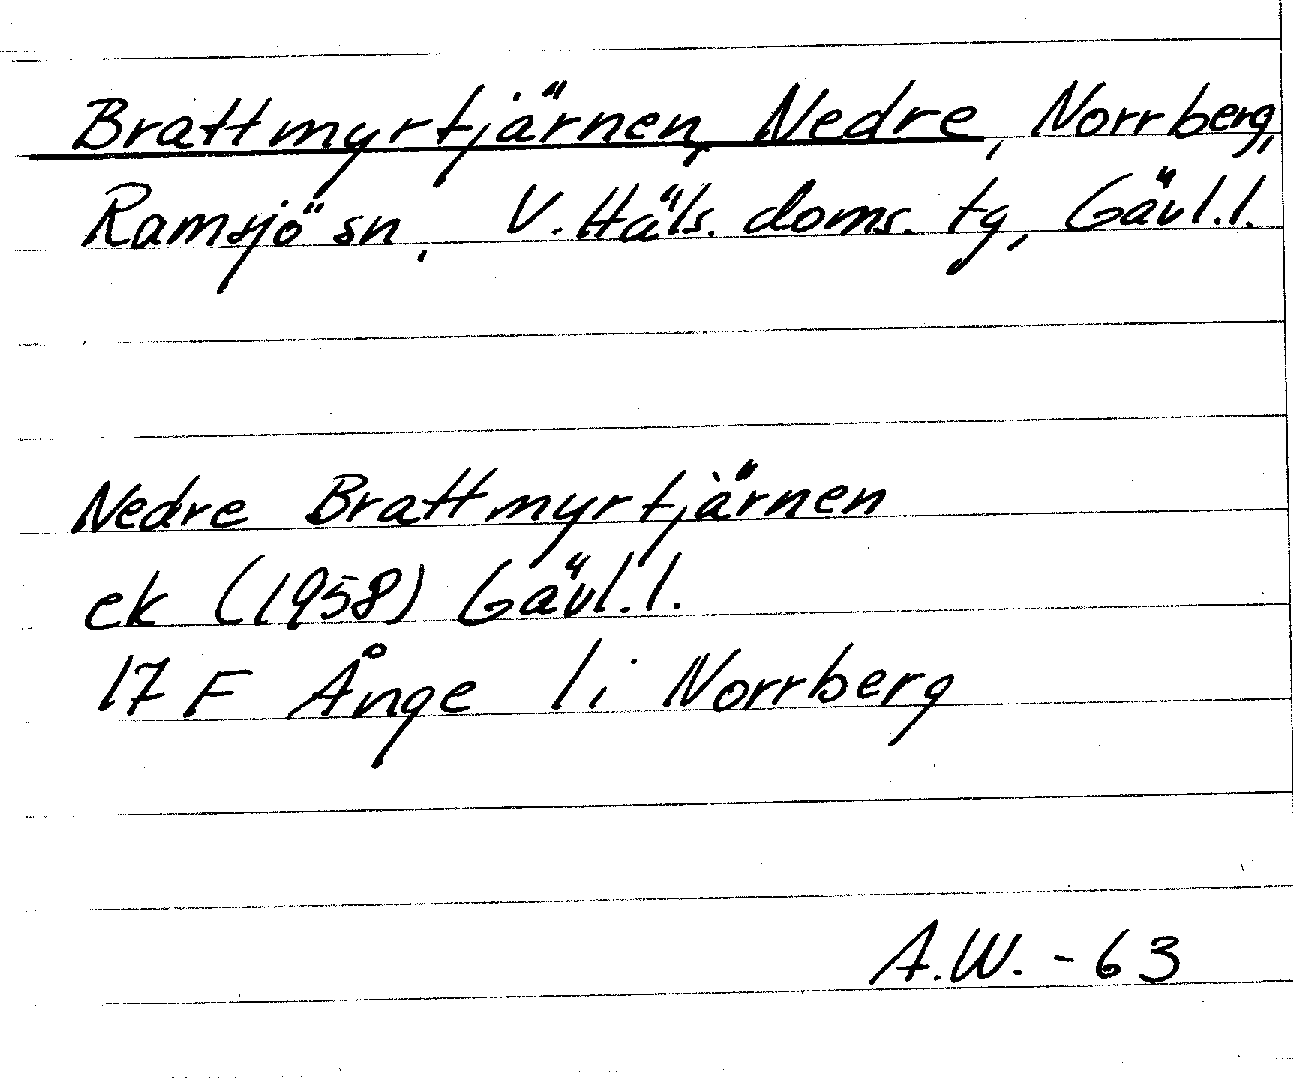 Brattmyrtjärnen, Nedre, Norrberg,
Ramsjö sn, V. Häls. doms. tg, Gävl.l.
Nedre Brattmyrtjärnen
ek (1958) Gävl.l.
17 F Ånge l i Norrberg
A.W. - 63